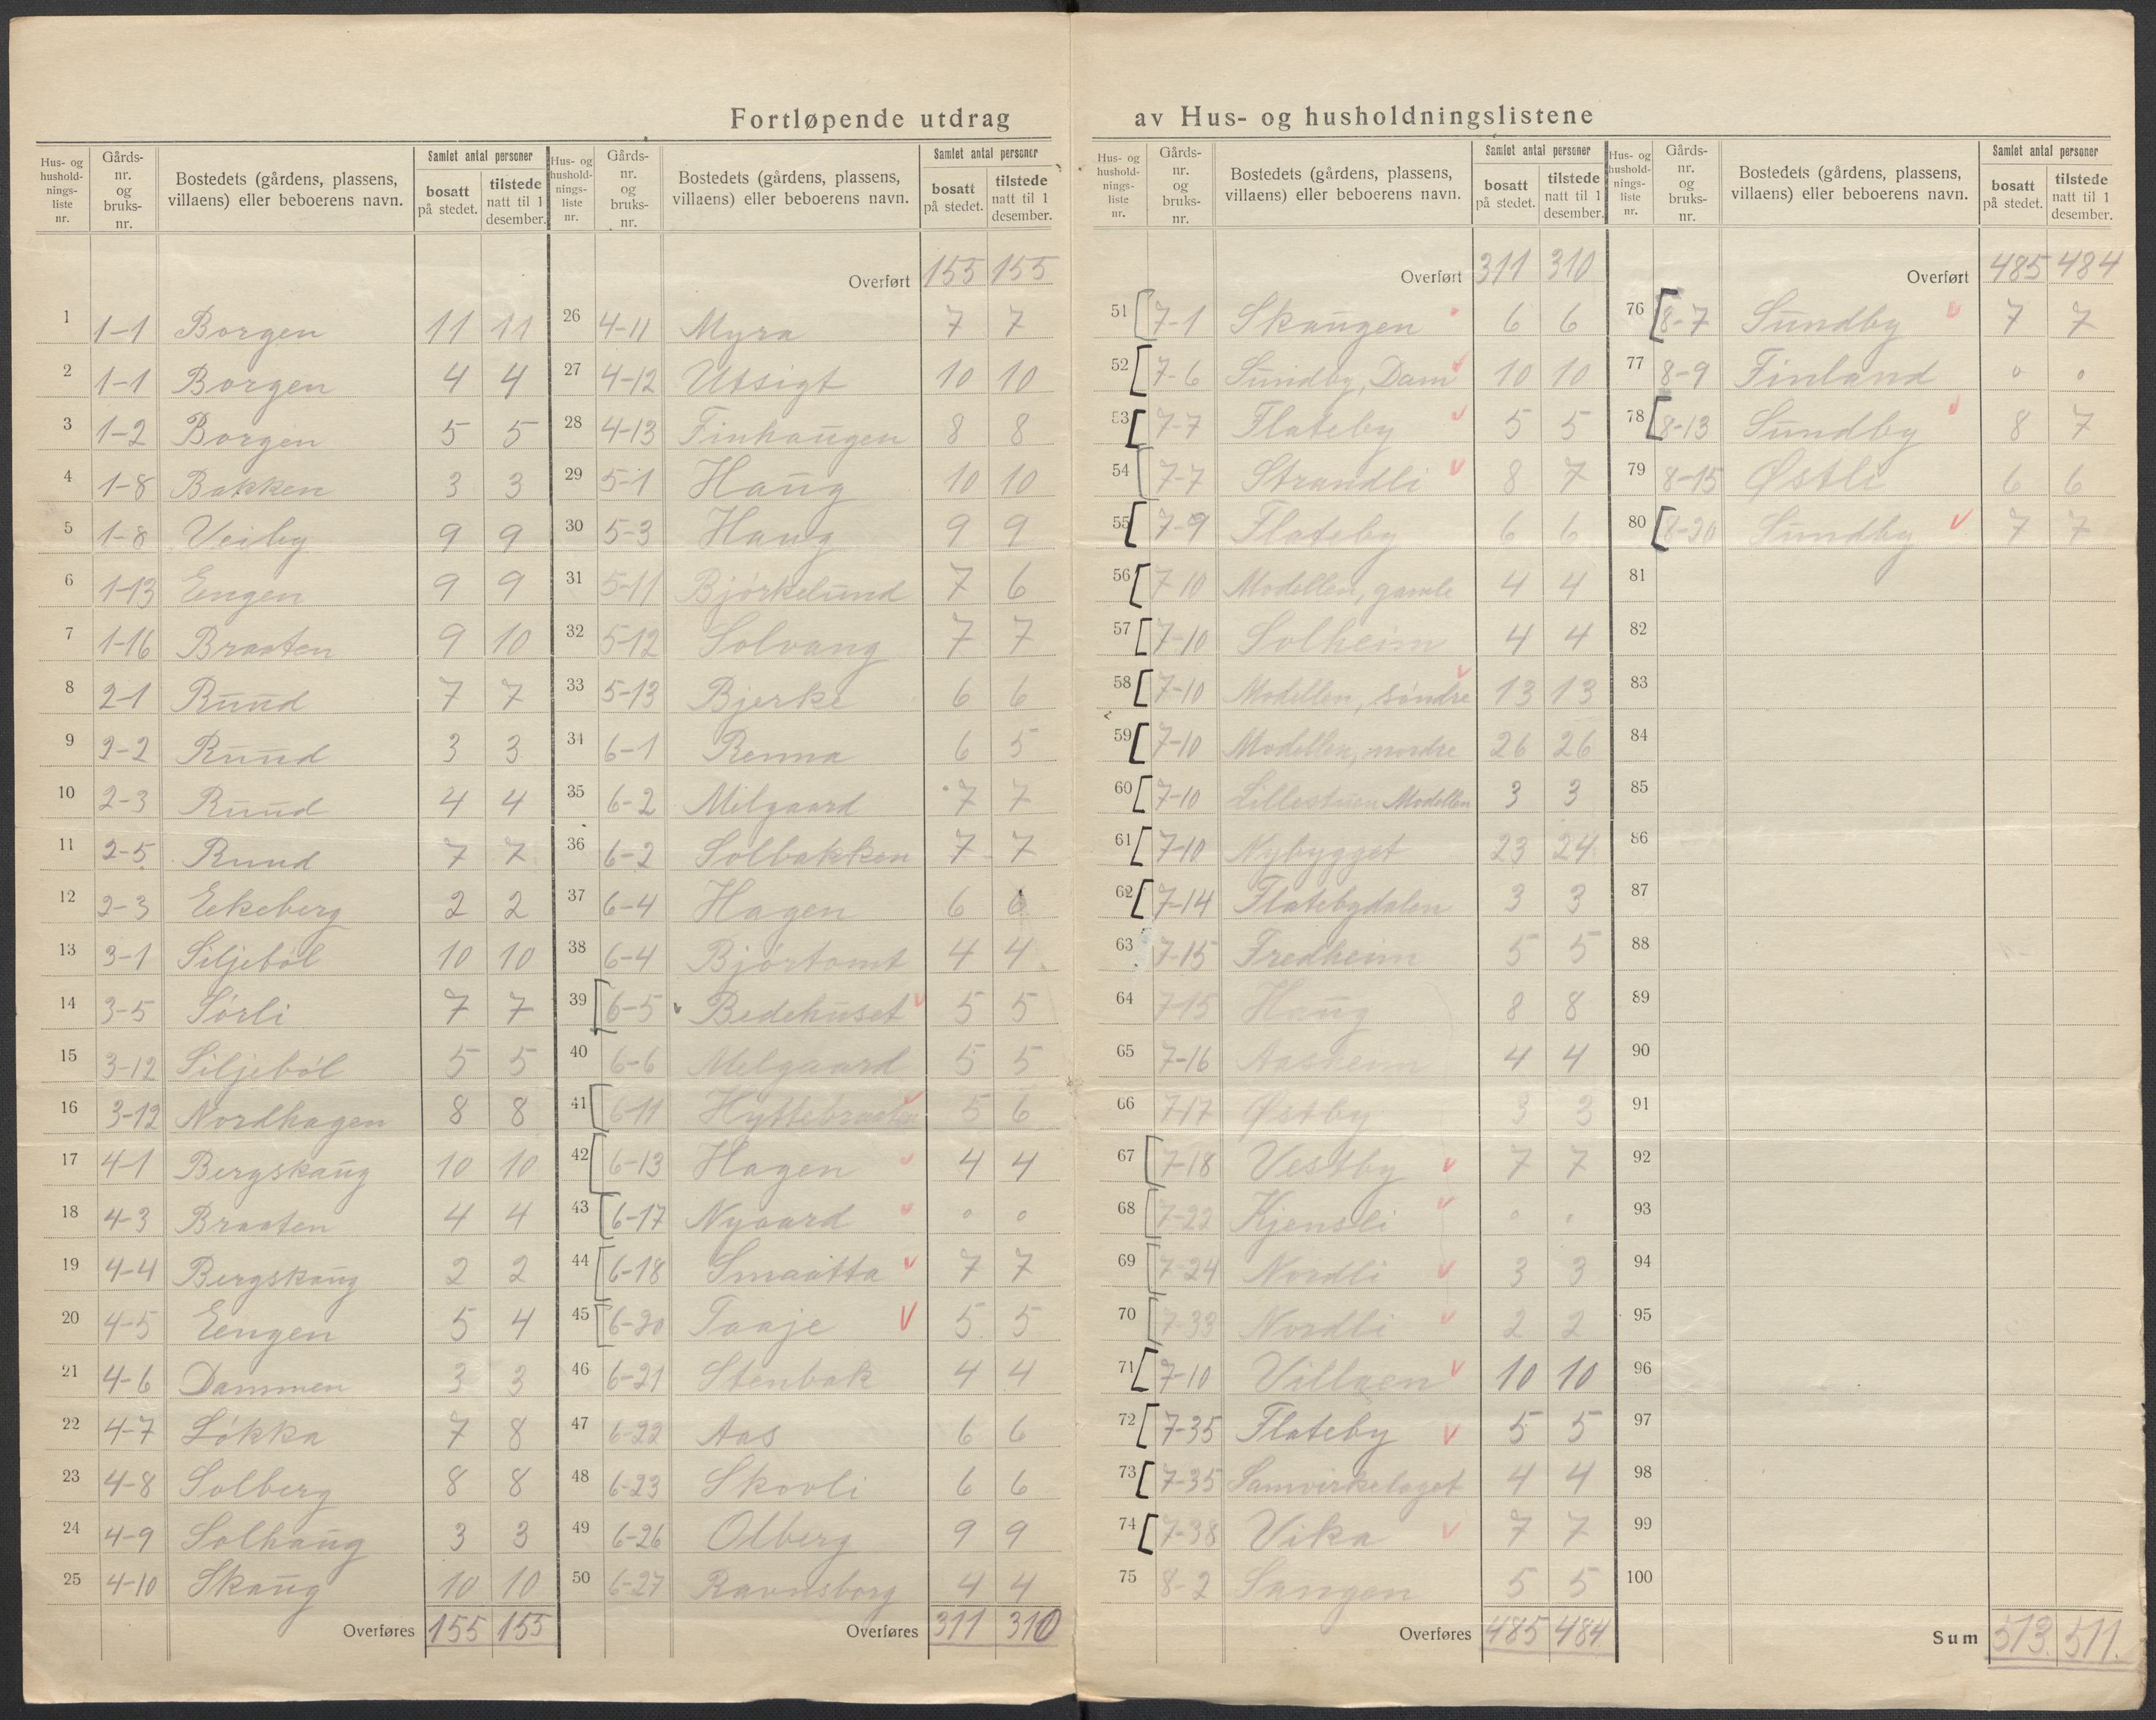 Fortløpende utdrag av Hus- og husholdningslistene
Hus- og hushold- nings- liste nr. | Gårds- nr. og bruks- nr. | Bostedets (gårdens, plassens, villaens) eller beboerens navn. | Samlet antal personer | bosatt på stedet. | tilstede natt til 1 desember.
1 1-1 Borgen 11 11
2 1-1 Borgen 4 4
3 1-2 Borgen 5 5
4 1-8 Bakken 3 3
5 1-8 Veiby 9 9
6 1-13 Eengen 9 9
7 1-16 Braaten 9 10
8 2-1 Ruud 7 7
9 2-2 Ruud 3 3
10 2-3 Ruud 4 4
11 2-5 Ruud 7 7
12 2-3 Eekeberg 2 2
13 3-1 Siljeböl 10 10
14 3-5 Sörli 7 7
15 3-12 Siljeböl 5 5
16 3-12 Nordhagen 8 8
17 4-1 Bergskaug 10 10
18 4-3 Braaten 4 4
19 4-4 Bergskaug 2 2
20 4-5 Eengen 5 4
21 4-6 Dammen 3 3
22 4-7 Lökka 7 8
23 4-8 Solberg 8 8
24 4-9 Solhaug 3 3
25 4-10 Skaug 10 10
Overføres 155 155
Hus- og hushold- nings- liste nr. | Gårds- nr. og bruks- nr. | Bostedets (gårdens, plassens, villaens) eller beboerens navn. | Samlet antal personer | bosatt på stedet. | tilstede natt til 1 desember.
Overført 155 155
26 4-11 Myra 7 7
27 4-12 Utsigt 10 10
28 4-13 Finhaugen 8 8
29 5-1 Haug 10 10
30 5-3 Haug 9 9
31 5-11 Björkelund 7 6
32 5-12 Solvang 7 7
33 5-13 Bjerke 6 6
34 6-1 Renna 6 5
35 6-2 Milgaard 7 7
36 6-2 Solbakken 7 7
37 6-4 Hagen 6 6
38 6-4 Björtomt 4 4
39 6-5 Bedehuset 5 5
40 6-6 Melgaard 5 5
41 6-11 Hyttebraaten 5 6
42 6-13 Hagen 4 4
43 6-17 Nygaard 0 0
44 6-18 Smaatta 7 7
45 6-20 Taaje 5 5
46 6-21 Stenbak 4 4
47 6-22 Aas 6 6
48 6-23 Skovli 6 6
49 6-26 Olberg 9 9
50 6-27 Ravnsborg 4 4
Overføres 311 310
Hus- og hushold- nings- liste nr. | Gårds- nr. og bruks- nr. | Bostedets (gårdens, plassens, villaens) eller beboerens navn. | Samlet antal personer | bosatt på stedet. | tilstede natt til 1 desember.
Overført 311 310
51 7-1 Skaugen 6 6
52 7-6 Sundby, Dam 10 10
53 7-7 Flateby 5 5
54 7-7 Strandli 8 7
55 7-9 Flateby 6 6
56 7-10 Modellen, gamle 4 4
57 7-10 Solheim 4 4
58 7-10 Modellen, söndre 13 13
59 7-10 Modellen, nordre 26 26
60 7-10 Lillestuen Modellen 3 3
61 7-10 Nybygget 23 24
62 7-14 Flatebydalen 3 3
63 7-15 Fredheim 5 5
64 7-15 Haug 8 8
65 7-16 Aasheim 4 4
66 7-17 Østby 3 3
67 7-18 Vestby 7 7
68 7-22 Kjensli 0 0
69 7-24 Nordli 3 3
70 7-33 Nordli 2 2
71 7-10 Villaen 10 10
72 7-35 Flateby 5 5
73 7-35 Samvirkelaget 4 4
74 7-38 Vika 7 7
75 8-2 Sangen 5 5
Overføres 485 484
Hus- og hushold- nings- liste nr. | Gårds- nr. og bruks- nr. | Bostedets (gårdens, plassens, villaens) eller beboerens navn. | Samlet antal personer | bosatt på stedet. | tilstede natt til 1 desember.
Overført 485 484
76 8-7 Sundby 7 7
77 8-9 Finland 0 0
78 8-13 Sundby 8 7
79 8-15 Østli 6 6
80 8-20 Sundby 7 7
81
82
83
84
85
86
87
88
89
90
91
92
93
94
95
96
97
98
99
100
Sum 513. 511.